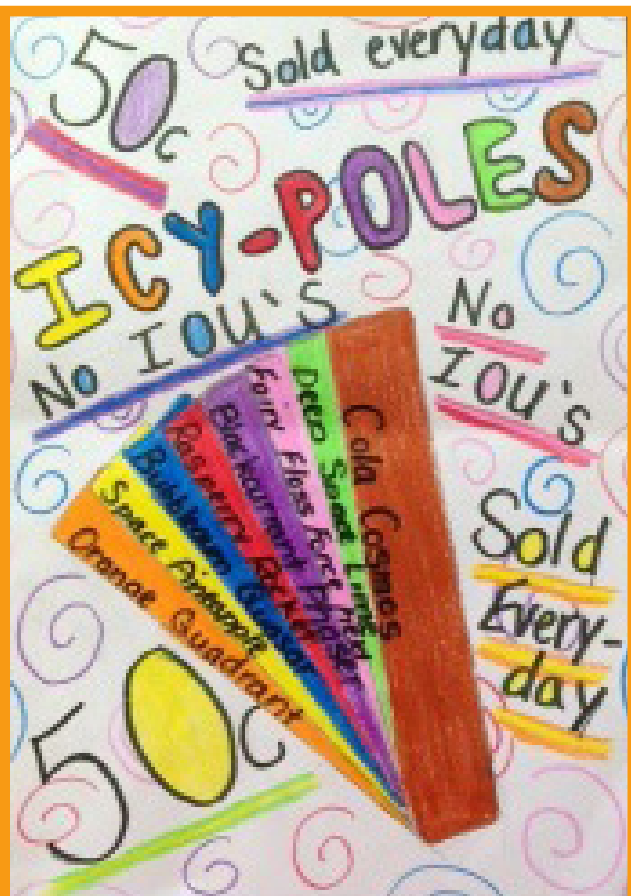 50c
Sold everyday
ICY-POLES
No IOU's
No
IOU's
Cola Cosmos
Deep Space Lime
Fairy Floss Force Field
Blackcurrant Phaser
Raspberry Rocket
Bubblegum Quasar
Space Pineapple
Orange Quadrant
Sold
Every-
day
50c